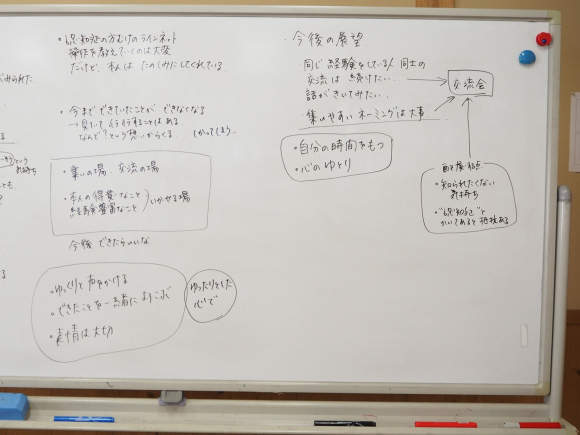 せられた
・認知症の方むけのラインネット
操作を教えていくのは大変
だけど、本人は たのしみにしてくれている
・今まで できていたことが できなくなる
→ 見ていて 行行することはある
なんで?という想いからくる しかってしまう..
・集いの場、交流の場
・本人の得意なこと
経験豊富なこと
いかせる場
今後 できたらいいな
・ゆっくりと 声をかける
・できたことを一緒によろこぶ
・表情は大切
ゆったりとした
心で
・今後の展望
同じ経験をしている人同士の
交流は 続けたい..
話がきいてみたい..
集いやすい ネーミングは大事
交流会
・自分の時間をもつ
・心のゆとり
・知られたくない
気持ち
・"認知症"と
かいてあると 抵抗ある